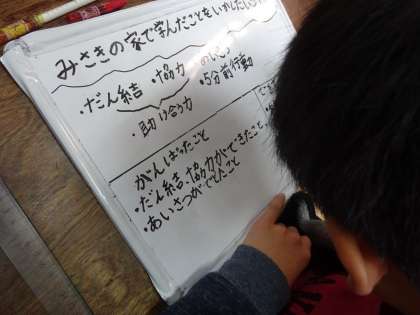 みさきの家で学んだことをいかしたい
・だん結 ・協力
・5分前行動
・助け合う力
がんばったこと
・だん結、協力ができたこと
・あいさつができたこと